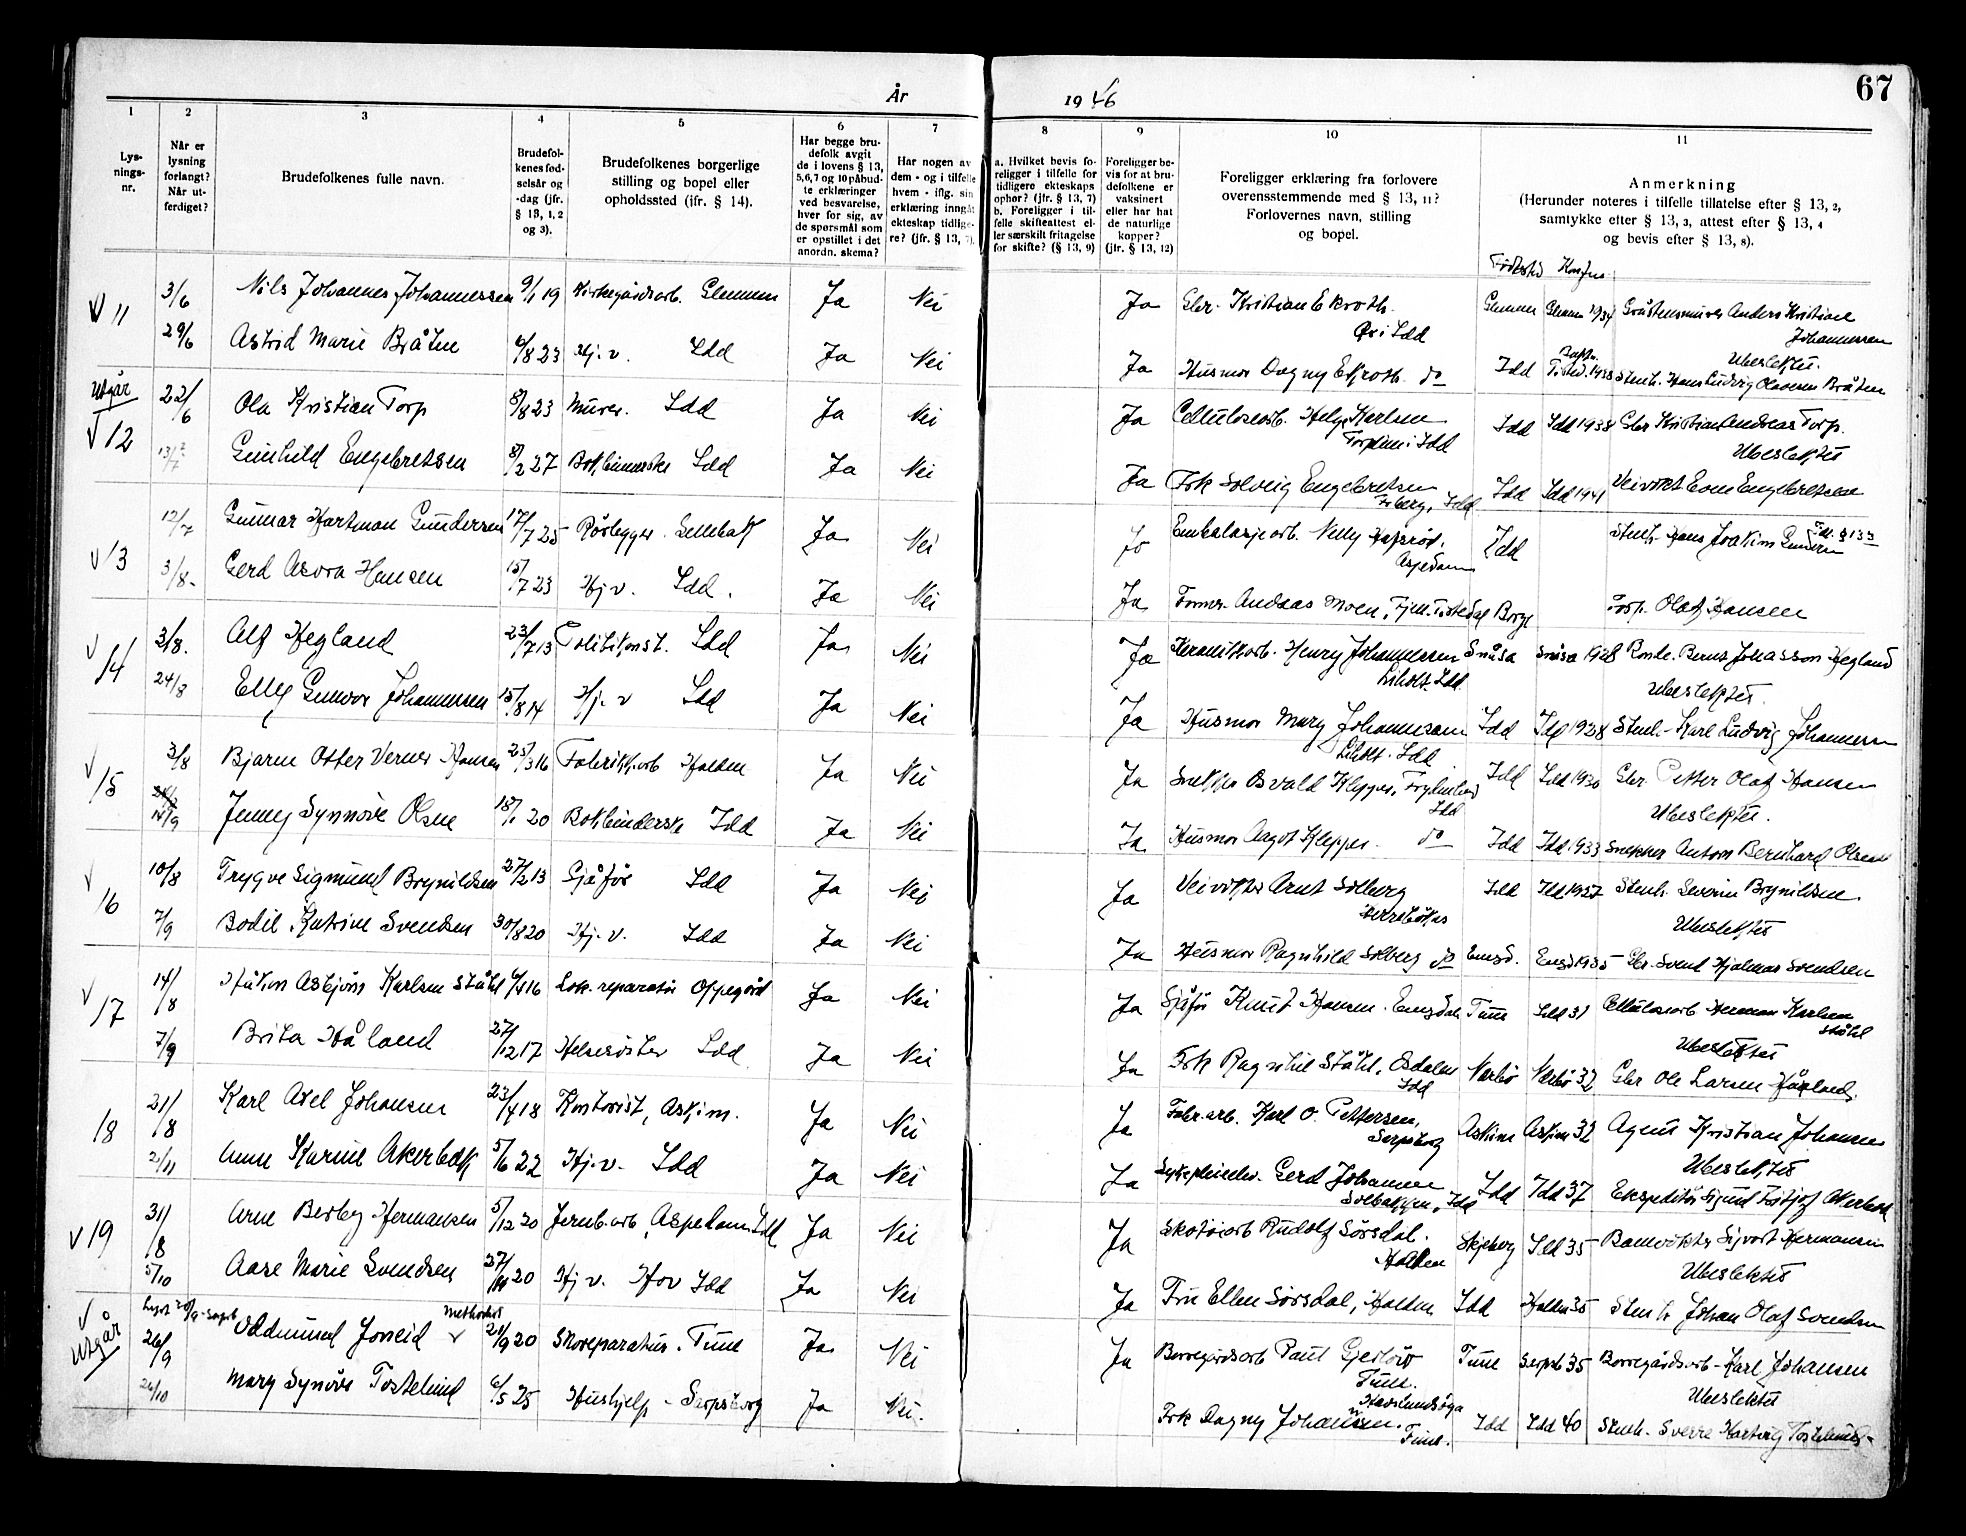 67
År 1946
1 2 3 4 5 6 7 8 9 10 11
Lys-
nings-
nr.
Når er
lysning
forlangt?
Når ut-
ferdiget?
Brudefolkenes fulle navn.
Brudefol-
kenes fød-
selsår og
-dag (jfr.
§ 13, 1, 2
og 3).
Brudefolkenes borgerlige
stilling og bopel eller
opholdssted (ifr. § 14).
Har begge bru-
defolk avgit
de i lovens § 13,
5,6,7 og 10 påbud-
te erklæringer
ved besvarelse,
hver for sig, av
de spørsmål som
er opstillet i det
anordn. skema?
Har nogen av
dem - og i tilfelle
hvem - iflg. sin
erklæring inngåt
ekteskap tidlige-
re? (jfr. § 13, 7).
a. Hvilket bevis fo-
religger i tilfelle for
tidligere ekteskaps
ophør? (jfr. § 13, 7)
b. Foreligger i til-
felle skifteattest el-
ler særskilt fritagelse
for skifte? (§ 13, 9)
Foreligger be-
vis for at bru-
defolkene er
vaksinert
eller har hat
de naturlige
kopper?
(jfr. § 13, 12)
Foreligger erklæring fra forlovere
overensstemmende med § 13, 11?
Forlovernes navn, stilling
og bopel.
Anmerkning
(Herunder noteres i tilfelle tillatelse efter § 13, 2,
samtykke efter § 13, 3, attest efter § 13, 4
og bevis efter § 13, 8).
Fødested
V 11 3/6 Nils Johannes Johannessen 9/1 19 Kirkegårdsarb. Glemmen Ja Nei Ja Gbr. Kristian Ekroth. Glemmen Anders Kristian
Idd Johannessen
29/6 Astrid Marie Bråten 6/8 23 Hj. v. Idd Ja Nei Ja Husmor Dagny Ekroth. do Idd Tisted. 1938 Stenh. Hans Ludvig Olavesen Bråten
Ubeslektet.
Utgår
V 12 22/6 Ola Kristian Torp 8/8 23 Murer. Idd Ja Nei Ja Cellulosearb. Helge Karlsen Idd Idd 1938 Gbr Kristian Andreas Torp.
Idd Ubeslektet
Gunhild Engebretsen 8/2 27 Bokbinderske Idd Ja Nei Ja Frk Solveig Engebretsen Idd Idd 1941 Engebretsen
Idd
V 13 12/7 Gunnar Hartman Gundersen 17/7 25 Rørlegger. Ja Nei Ja Embalasjearb. Nelly Idd Stenh. Hans Joakim
Aspedam
3/8- Gerd Asora Hansen 15/7 23 Hj v. Idd. Ja Nei Ja Andreas Moen, Borge Olaf Hansen
V 14 3/8. Alf Hegland 23/7 13 Politikonst. Idd Ja Nei Ja Keramikkarb. Henry Johannessen Snåsa Snåsa 1928 Bernt Johasson Hegland
Liholt. Idd. Ubeslektet.
24/8 Elly Gunvor Johannessen 15/8 14 Hj. v Idd Ja Nei Ja Husmor Mary Johannessen Idd Idd 1928 Stenh. Karl Ludvig Johannessen
Liholt. Idd
V 15 3/8 Bjarne Otter Verner Hansen 25/3 16 Fabrikkarb Halden Ja Nei Ja Snekker Osvald Klepper, Idd Idd 1930 Gbr Petter Olaf Hansen
Idd Ubeslektet.
14/9 Jenny Synnøve Olsen 18/1 20 Bokbinderske Idd Ja Nei Ja Husmor Aagot Klepper. do Idd Idd 1933 Snekker Anton Bernhard Olsen
V 16 10/8 Trygve Sigmund Brynildsen 27/2 13 Sjåfør Idd Ja Nei Ja Veivokter Arnt Solberg Idd Idd 1927 Stenh. Severin Brynildsen
Ubeslektet
7/9 Bodil Katrine Svendsen 30/8 20 Hj. v. Idd Ja Nei Ja Husmor Ragnhild Solberg do Enigd. Enigd 1935 Gbr. Svend Hjalmar Svendsen
V 17 14/8 Håkon Asbjørn Karlsen Ståhl 6/1 16 Lok. reparatør Oppegård Ja Nei Ja Sjåfør Knut Hansen. Tune Idd 31 Cellulosearb Herman Karlsen
Ståhl
Ubeslektet
7/9 Brita Håland 27/12 17 Helsesøster Idd Ja Nei Ja Frk Ragnhil Ståhl, Nærbø Nærbø 32 Gbr Ole Larsen Håland.
Idd
18 21/8 Karl Axel Johansen 23/4 18 Kontorist, Askim. Ja Nei Ja Fabr. arb. Karl O. Pettersen, Askim Askim 32 Agent Kristian Johansen
Sarpsborg Ubeslektet
2/11 Anne Karine Akerbæk 5/6 22 Hj. v. Idd Ja Nei Ja Gerd Johansen Idd Idd 37 Ekspeditør Sigurd Akerbæk
Solbakken, Idd
V 19 31/8 Arne Berby Hermansen 5/12 20 Jernb. arb, Aspedam Idd Ja Nei Ja Skotøiarb Rudolf Sørsdal. Skjeberg Idd 35 Banevokter Sigvart Hermansen
Halden Ubeslektet
5/10 Aase Marie Svendsen 27/11 20 Hj v. Hov Idd Ja Nei Ja Fru Ellen Sørsdal, Halden Idd Halden 35 Stenh. Johan Olaf Svendsen
V
Utgår 26/9 Oddmund Joneid V Metodist 21/9 20 Skoreparatør. Tune Ja Nei Ja Borregårdsarb Paul Tune Sarpsb 35 Borregårdsarb - Karl Johansen
Tune. Ubeslektet
26/10 Mary Synøve Tostelund 6/5 25 Hushjelp - Sarpsborg Ja Nei. Frk Dagny Johansen. Idd Idd 40 Stenh. Sverre Hartvig
Tune.